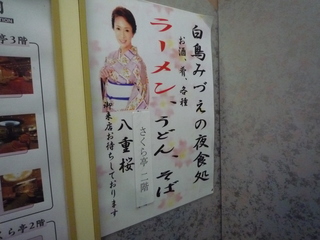 白鳥みづえの夜食処
お酒、肴、各種
ラーメン、うどん、そば
さくら亭 二階
八重桜
御来店お待ちしております
亭3階
ら亭2階